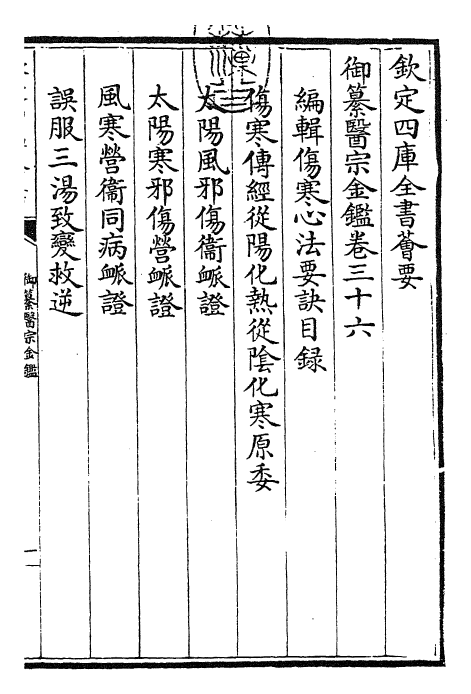 欽定四庫全書薈要
御纂醫宗金鑑卷三十六
編輯傷寒心法要訣目録
傷寒傳經從陽化熱從陰化寒原委
太陽風邪傷衞脈證
太陽寒邪傷營脈證
風寒營衞同病脈證
誤服三湯致變救逆
御纂醫宗金鑑
一